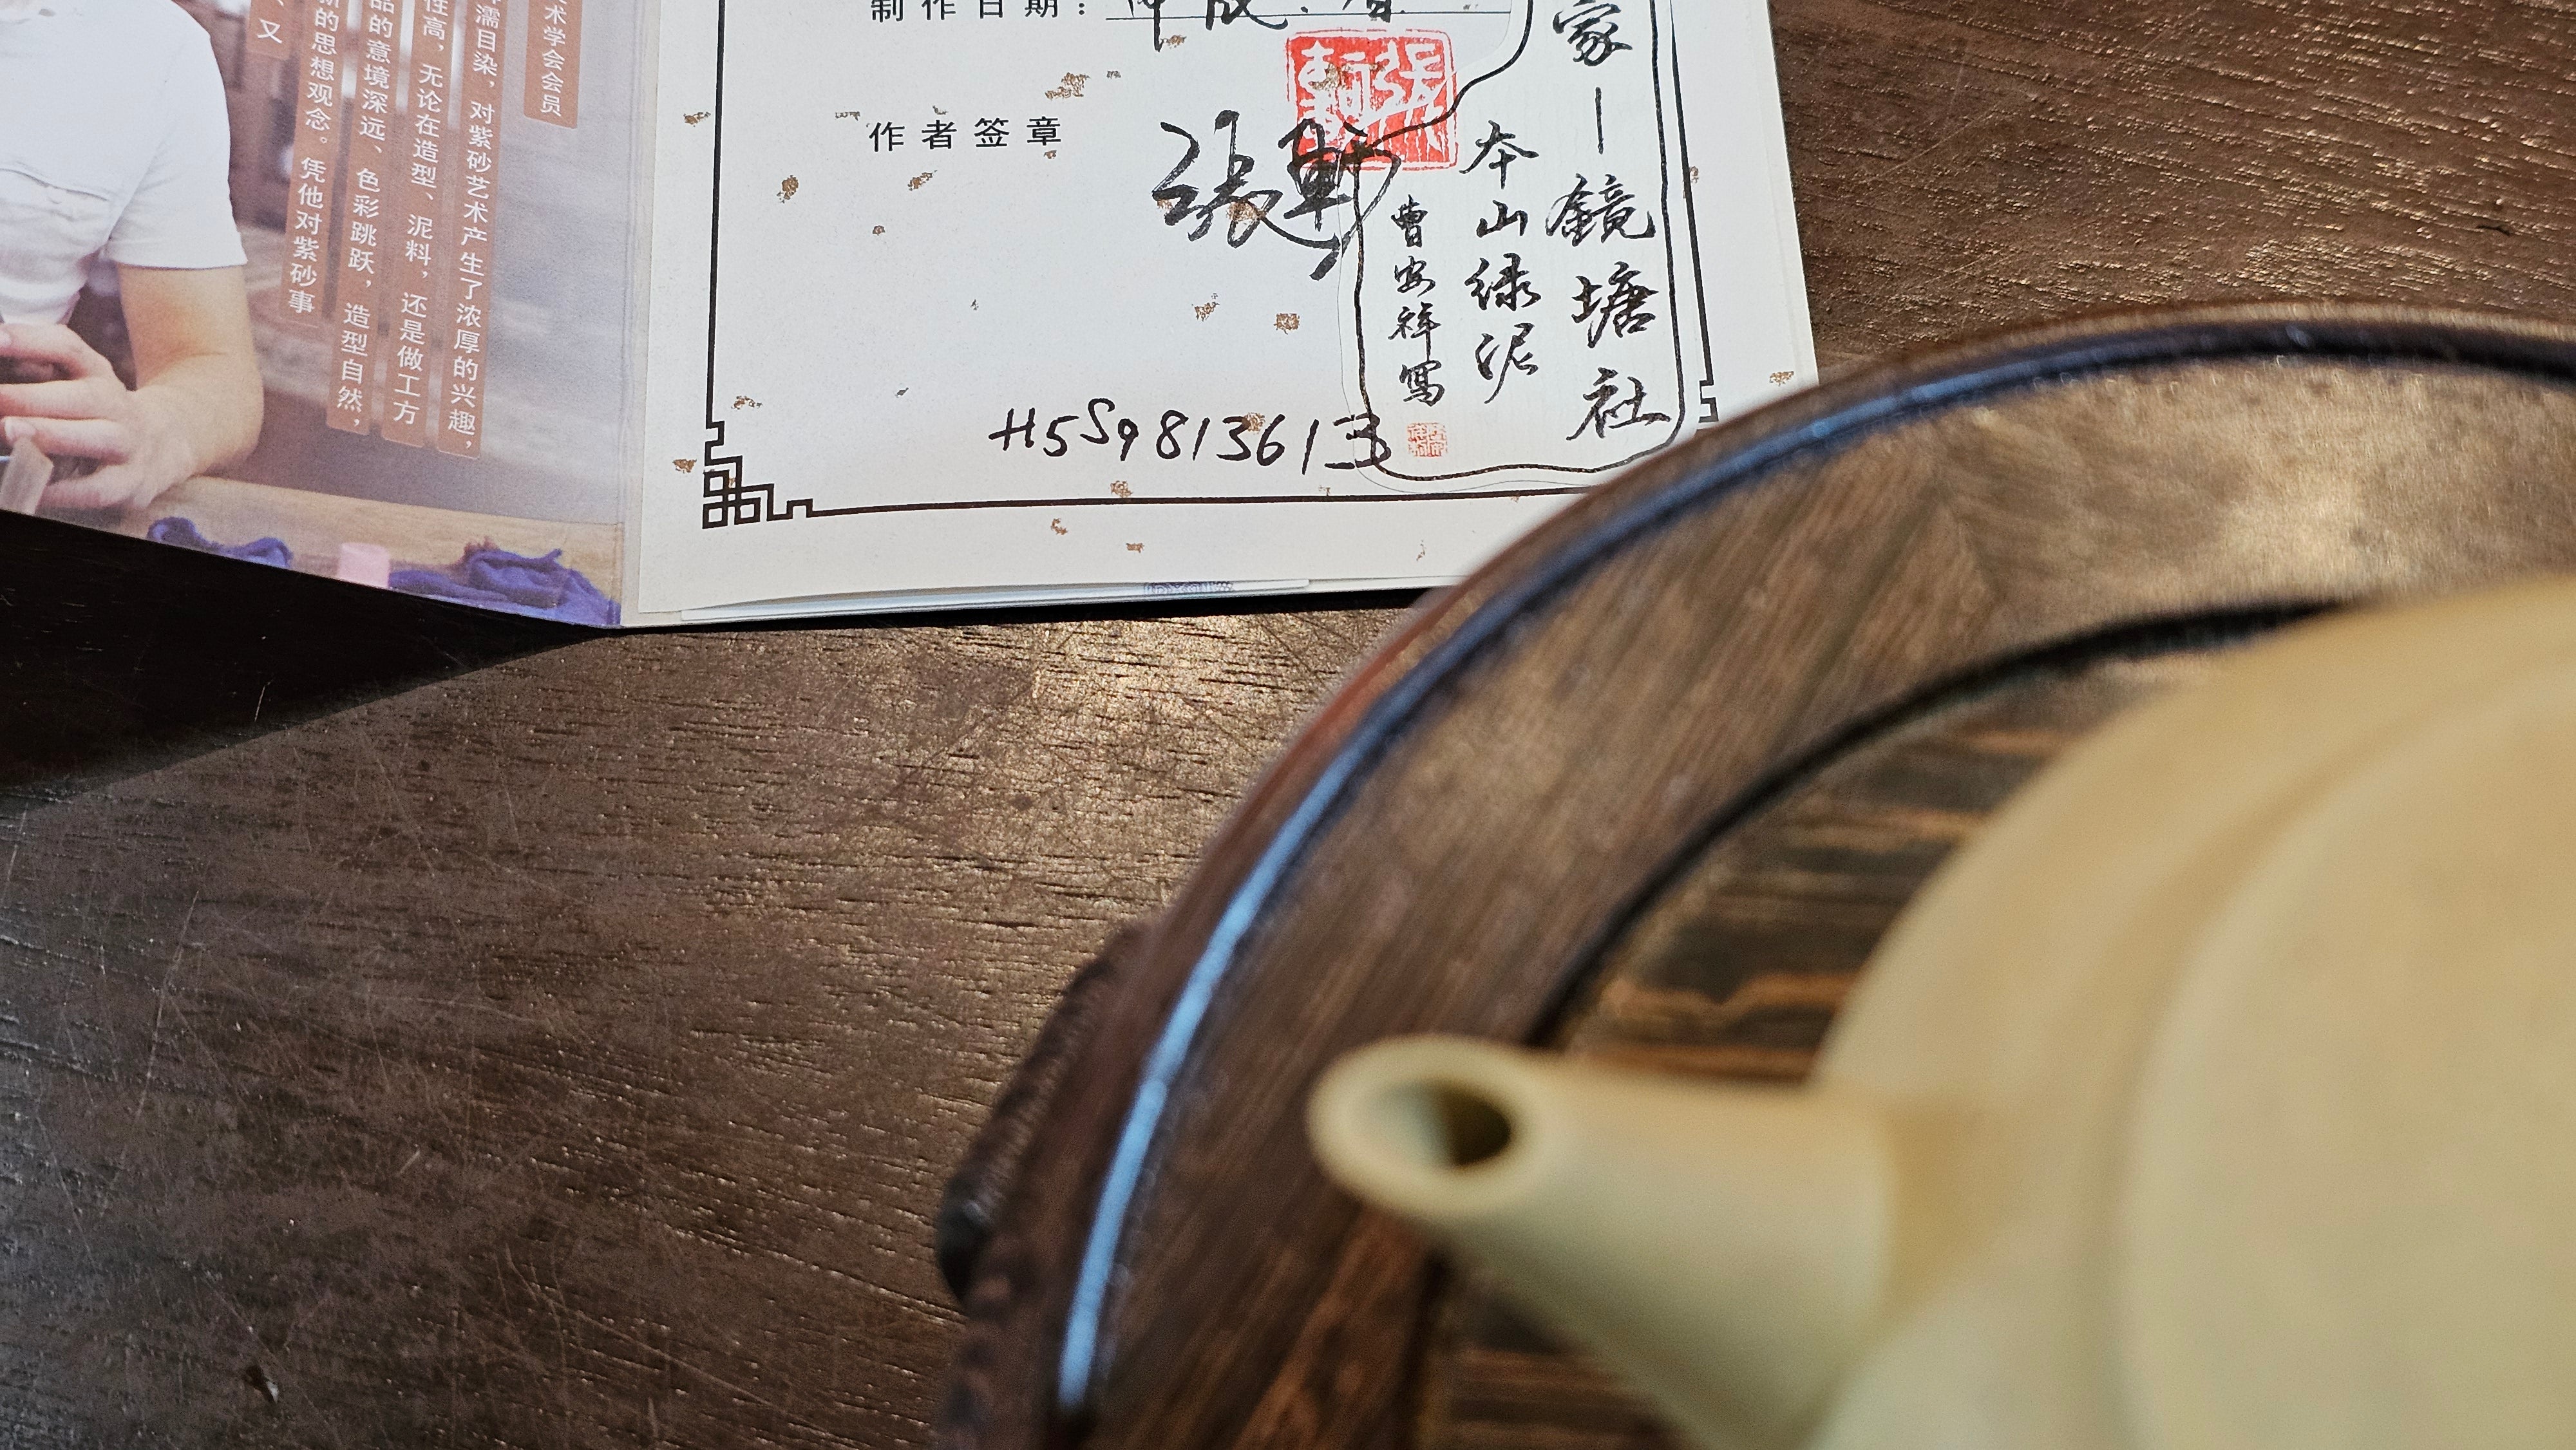 术学会会员
濡目染，对紫砂艺术产生了浓厚的兴趣，
性高，无论在造型、泥料，还是做工方
品的意境深远、色彩跳跃，造型自然，
新的思想观念。凭他对紫砂事
、又
制作日期：
作者签章
張軒
張軒
H5S98136133
家一鏡塘社
本山绿泥
曹安祥寫